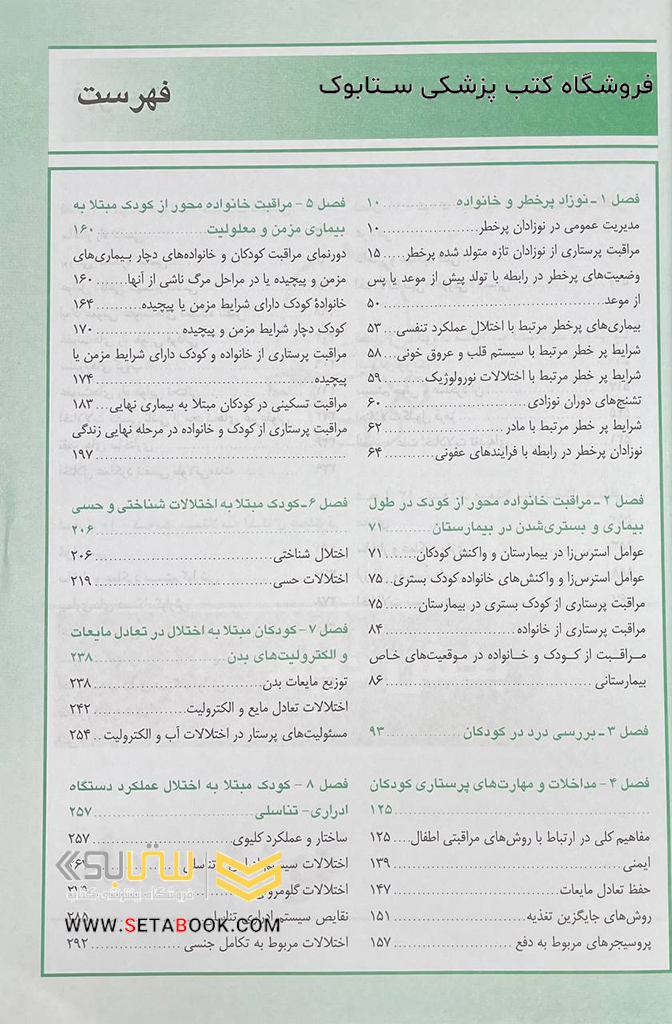 فروشگاه کتب پزشکی ستابوک
فهرست
فصل ۱ـ نوزاد پرخطر و خانواده ........ ۱۰
مدیریت عمومی در نوزادان پرخطر ........ ۱۰
مراقبت پرستاری از نوزادان تازه متولد شده پرخطر ..... ۱۵
وضعیت‌های پرخطر در رابطه با تولد پیش از موعد یا پس
از موعد ........ ۵۰
بیماری‌های پرخطر مرتبط با اختلال عملکرد تنفسی ... ۵۳
شرایط پر خطر مرتبط با سیستم قلب و عروق خونی ... ۵۸
شرایط پر خطر مرتبط با اختلالات نورولوژیک ........ ۵۹
تشنج‌های دوران نوزادی ........ ۶۰
شرایط پر خطر مرتبط با مادر ........ ۶۲
نوزادان پرخطر در رابطه با فرایندهای عفونی ........ ۶۴
فصل ۲ـ مراقبت خانواده محور از کودک در طول
بیماری و بستری‌شدن در بیمارستان ........ ۷۱
عوامل استرس‌زا در بیمارستان و واکنش کودکان ..... ۷۱
عوامل استرس‌زا و واکنش‌های خانواده کودک بستری .. ۷۵
مراقبت پرستاری از کودک بستری در بیمارستان ..... ۷۵
مراقبت پرستاری از خانواده ........ ۸۴
مراقبت از کودک و خانواده در موقعیت‌های خاص
بیمارستانی ........ ۸۶
فصل ۳ـ بررسی درد در کودکان ........ ۹۳
فصل ۴ـ مداخلات و مهارت‌های پرستاری کودکان
........ ۱۲۵
مفاهیم کلی در ارتباط با روش‌های مراقبتی اطفال .... ۱۲۵
ایمنی ........ ۱۳۹
حفظ تعادل مایعات ........ ۱۴۷
روش‌های جایگزین تغذیه ........ ۱۵۱
پروسیجرهای مربوط به دفع ........ ۱۵۷
فصل ۵ـ مراقبت خانواده محور از کودک مبتلا به
بیماری مزمن و معلولیت ........ ۱۶۰
دورنمای مراقبت کودکان و خانواده‌های دچار بیماری‌های
مزمن و پیچیده یا در مراحل مرگ ناشی از آنها ....... ۱۶۰
خانوادهٔ کودک دارای شرایط مزمن یا پیچیده ........ ۱۶۴
کودک دچار شرایط مزمن و پیچیده ........ ۱۷۰
مراقبت پرستاری از خانواده و کودک دارای شرایط مزمن یا
پیچیده ........ ۱۷۴
مراقبت تسکینی در کودکان مبتلا به بیماری نهایی .... ۱۸۳
مراقبت پرستاری از کودک و خانواده در مرحله نهایی زندگی
........ ۱۹۷
فصل ۶ـ کودک مبتلا به اختلالات شناختی و حسی
........ ۲۰۶
اختلال شناختی ........ ۲۰۶
اختلالات حسی ........ ۲۱۹
فصل ۷ـ کودکان مبتلا به اختلال در تعادل مایعات
و الکترولیت‌های بدن ........ ۲۳۸
توزیع مایعات بدن ........ ۲۳۸
اختلالات تعادل مایع و الکترولیت ........ ۲۴۲
مسئولیت‌های پرستار در اختلالات آب و الکترولیت .. ۲۵۴
فصل ۸ـ کودک مبتلا به اختلال عملکرد دستگاه
ادراری- تناسلی ........ ۲۵۷
ساختار و عملکرد کلیوی ........ ۲۵۷
اختلالات
اختلالات
نقایص سیستم ادراری تناسلی ........ ۲۸۵
اختلالات مربوط به تکامل جنسی ........ ۲۹۲
ستابوک
فروشگاه اینترنتی کتاب
WWW.SETABOOK.COM